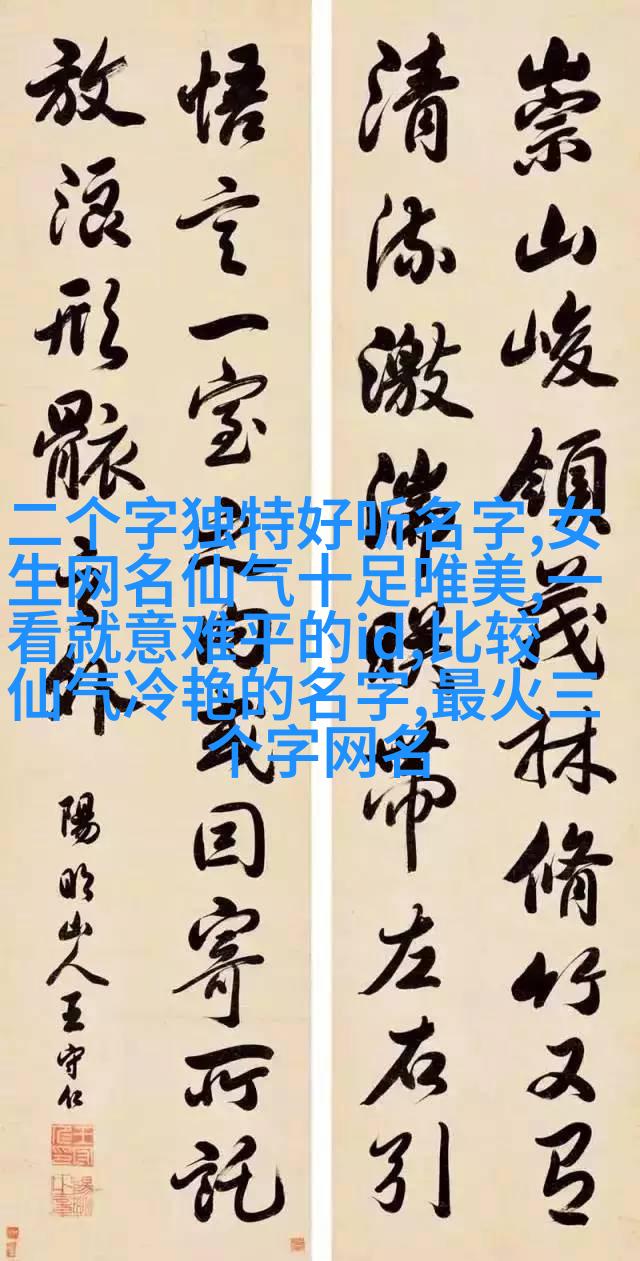 崇山峻領茂林脩竹又有
清流激湍暎帶左右引
悟言一室之内或因寄所託
放浪形骸之外
陽明山人王守仁
二个字独特好听名字,女
生网名仙气十足唯美,一
看就意难平的id,比较
仙气冷艳的名字,最火三
个字网名